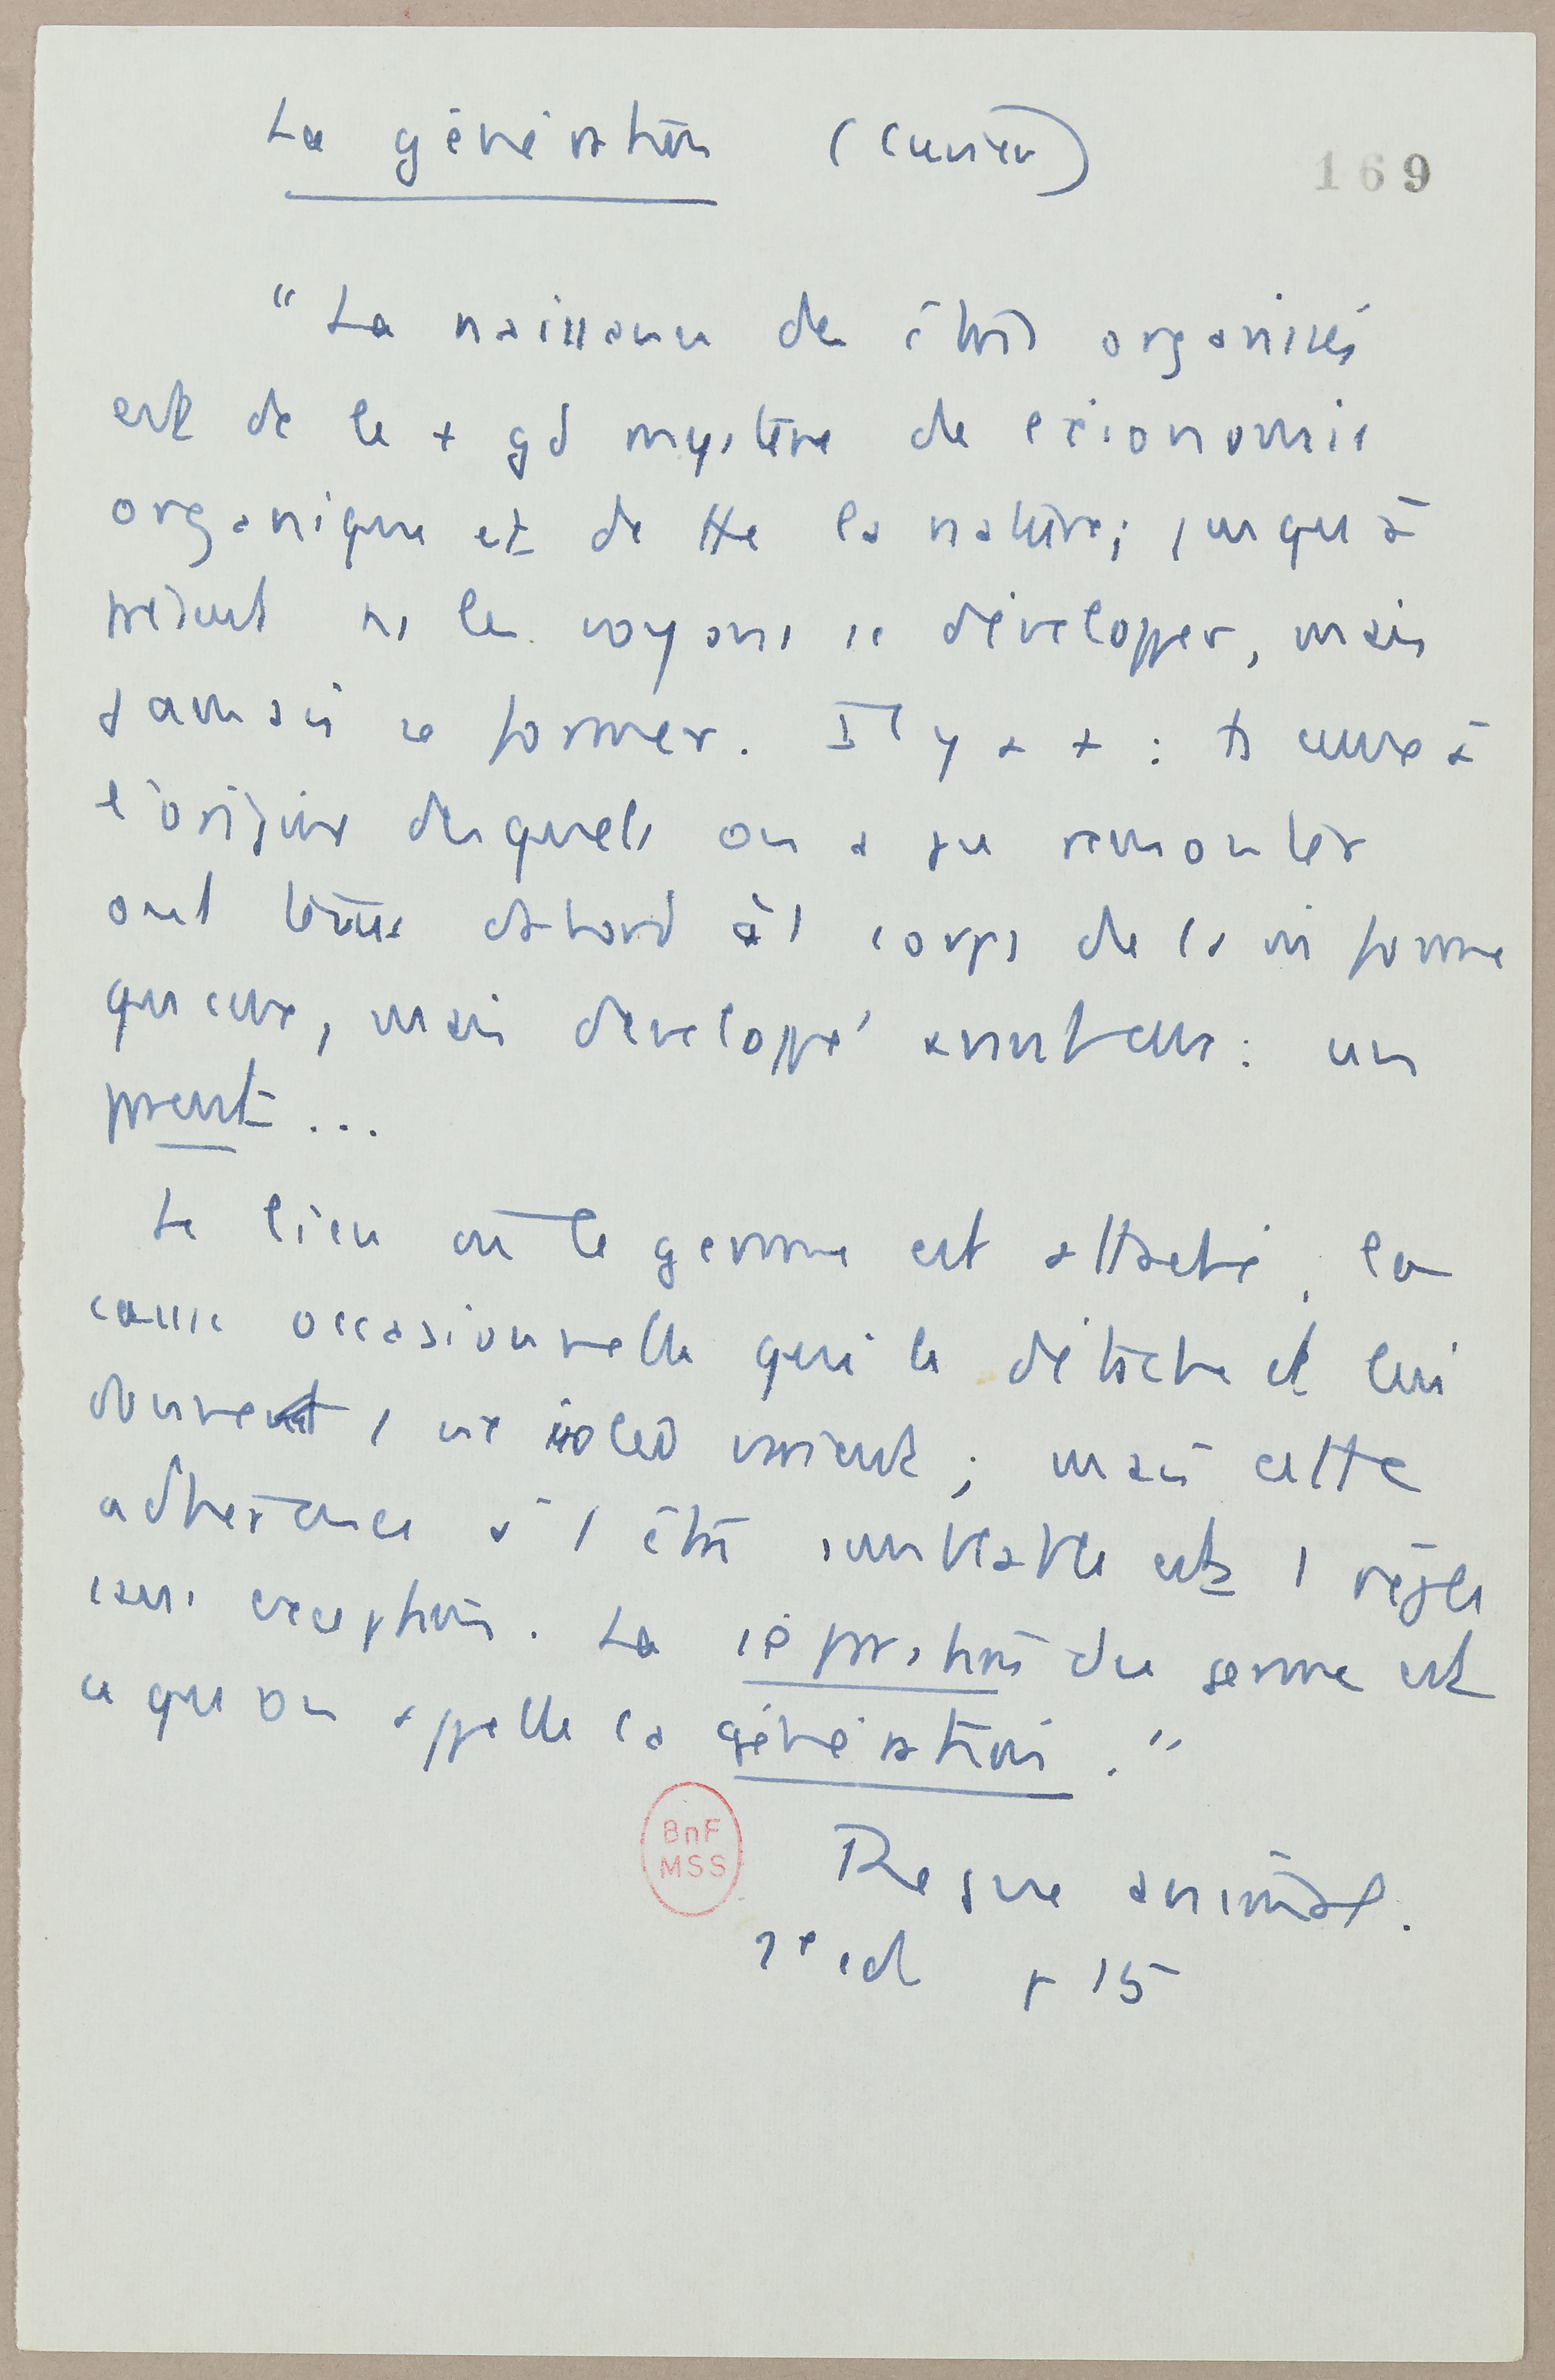 La génération (Cuvier)
169
"La naissance des êtres organisés
est de le + gd mystère de l'économie
organique et de tte la nature ; jusqu'à
présent ns les voyons se développer, mais
jamais se former. Il y a + : ts ceux à
l'origine desquels on a pu remonter
ont tenu d'abord à 1 corps de la m forme
qu'eux, mais développé avant eux : un
parent ...
Le lieu où le germe est attaché, la
cause occasionnelle qui le détache et lui
donne 1 vie isolée varient ; mais cette
adhérence à 1 être semblable est 1 règle
sans exception. La séparation du germe est
ce qu'on appelle la génération."
BnF
MSS
Règne animal.
2e éd p 15